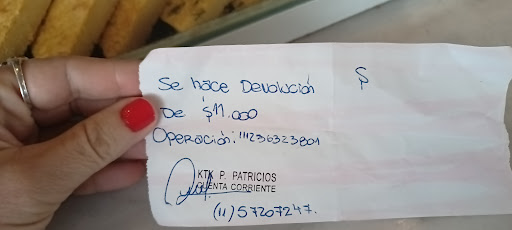 Se hace Devolución $
De $11.000
Operación: 111236323801
KTK P. PATRICIOS
CUENTA CORRIENTE
(11) 57207247.